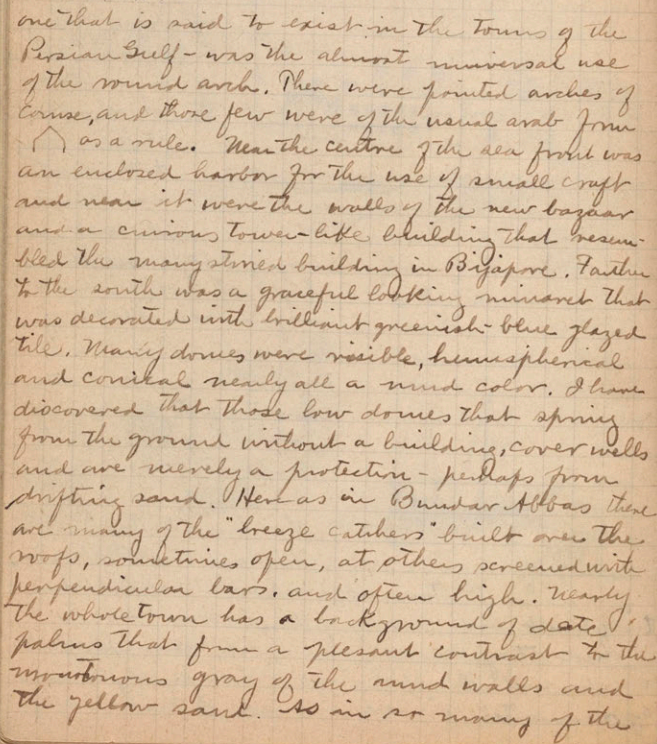 one that is said to exist in the towns of the
Persian Gulf - was the almost universal use
of the round arch. There were pointed arches of
course, and those few were of the usual arab form
as a rule. Near the centre of the sea front was
an enclosed harbor for the use of small craft
and near it were the walls of the new bazaar
and a curious tower-like building that resem-
bled the many storied building in Bijapore. Farther
to the south was a graceful looking minaret that
was decorated with brilliant greenish-blue glazed
tile. Many domes were visible, hemispherical
and conical nearly all a mud color. I have
discovered that those low domes that spring
from the ground without a building, cover wells
and are merely a protection - perhaps from
drifting sand. Here as in Bundar Abbas there
are many of the "breeze catchers" built over the
roofs, sometimes open, at others screened with
perpendicular bars, and often high. Nearly
the whole town has a background of date
palms that from a plesant contrast to the
monotonous gray of the mud walls and
the yellow sand. As in so many of the